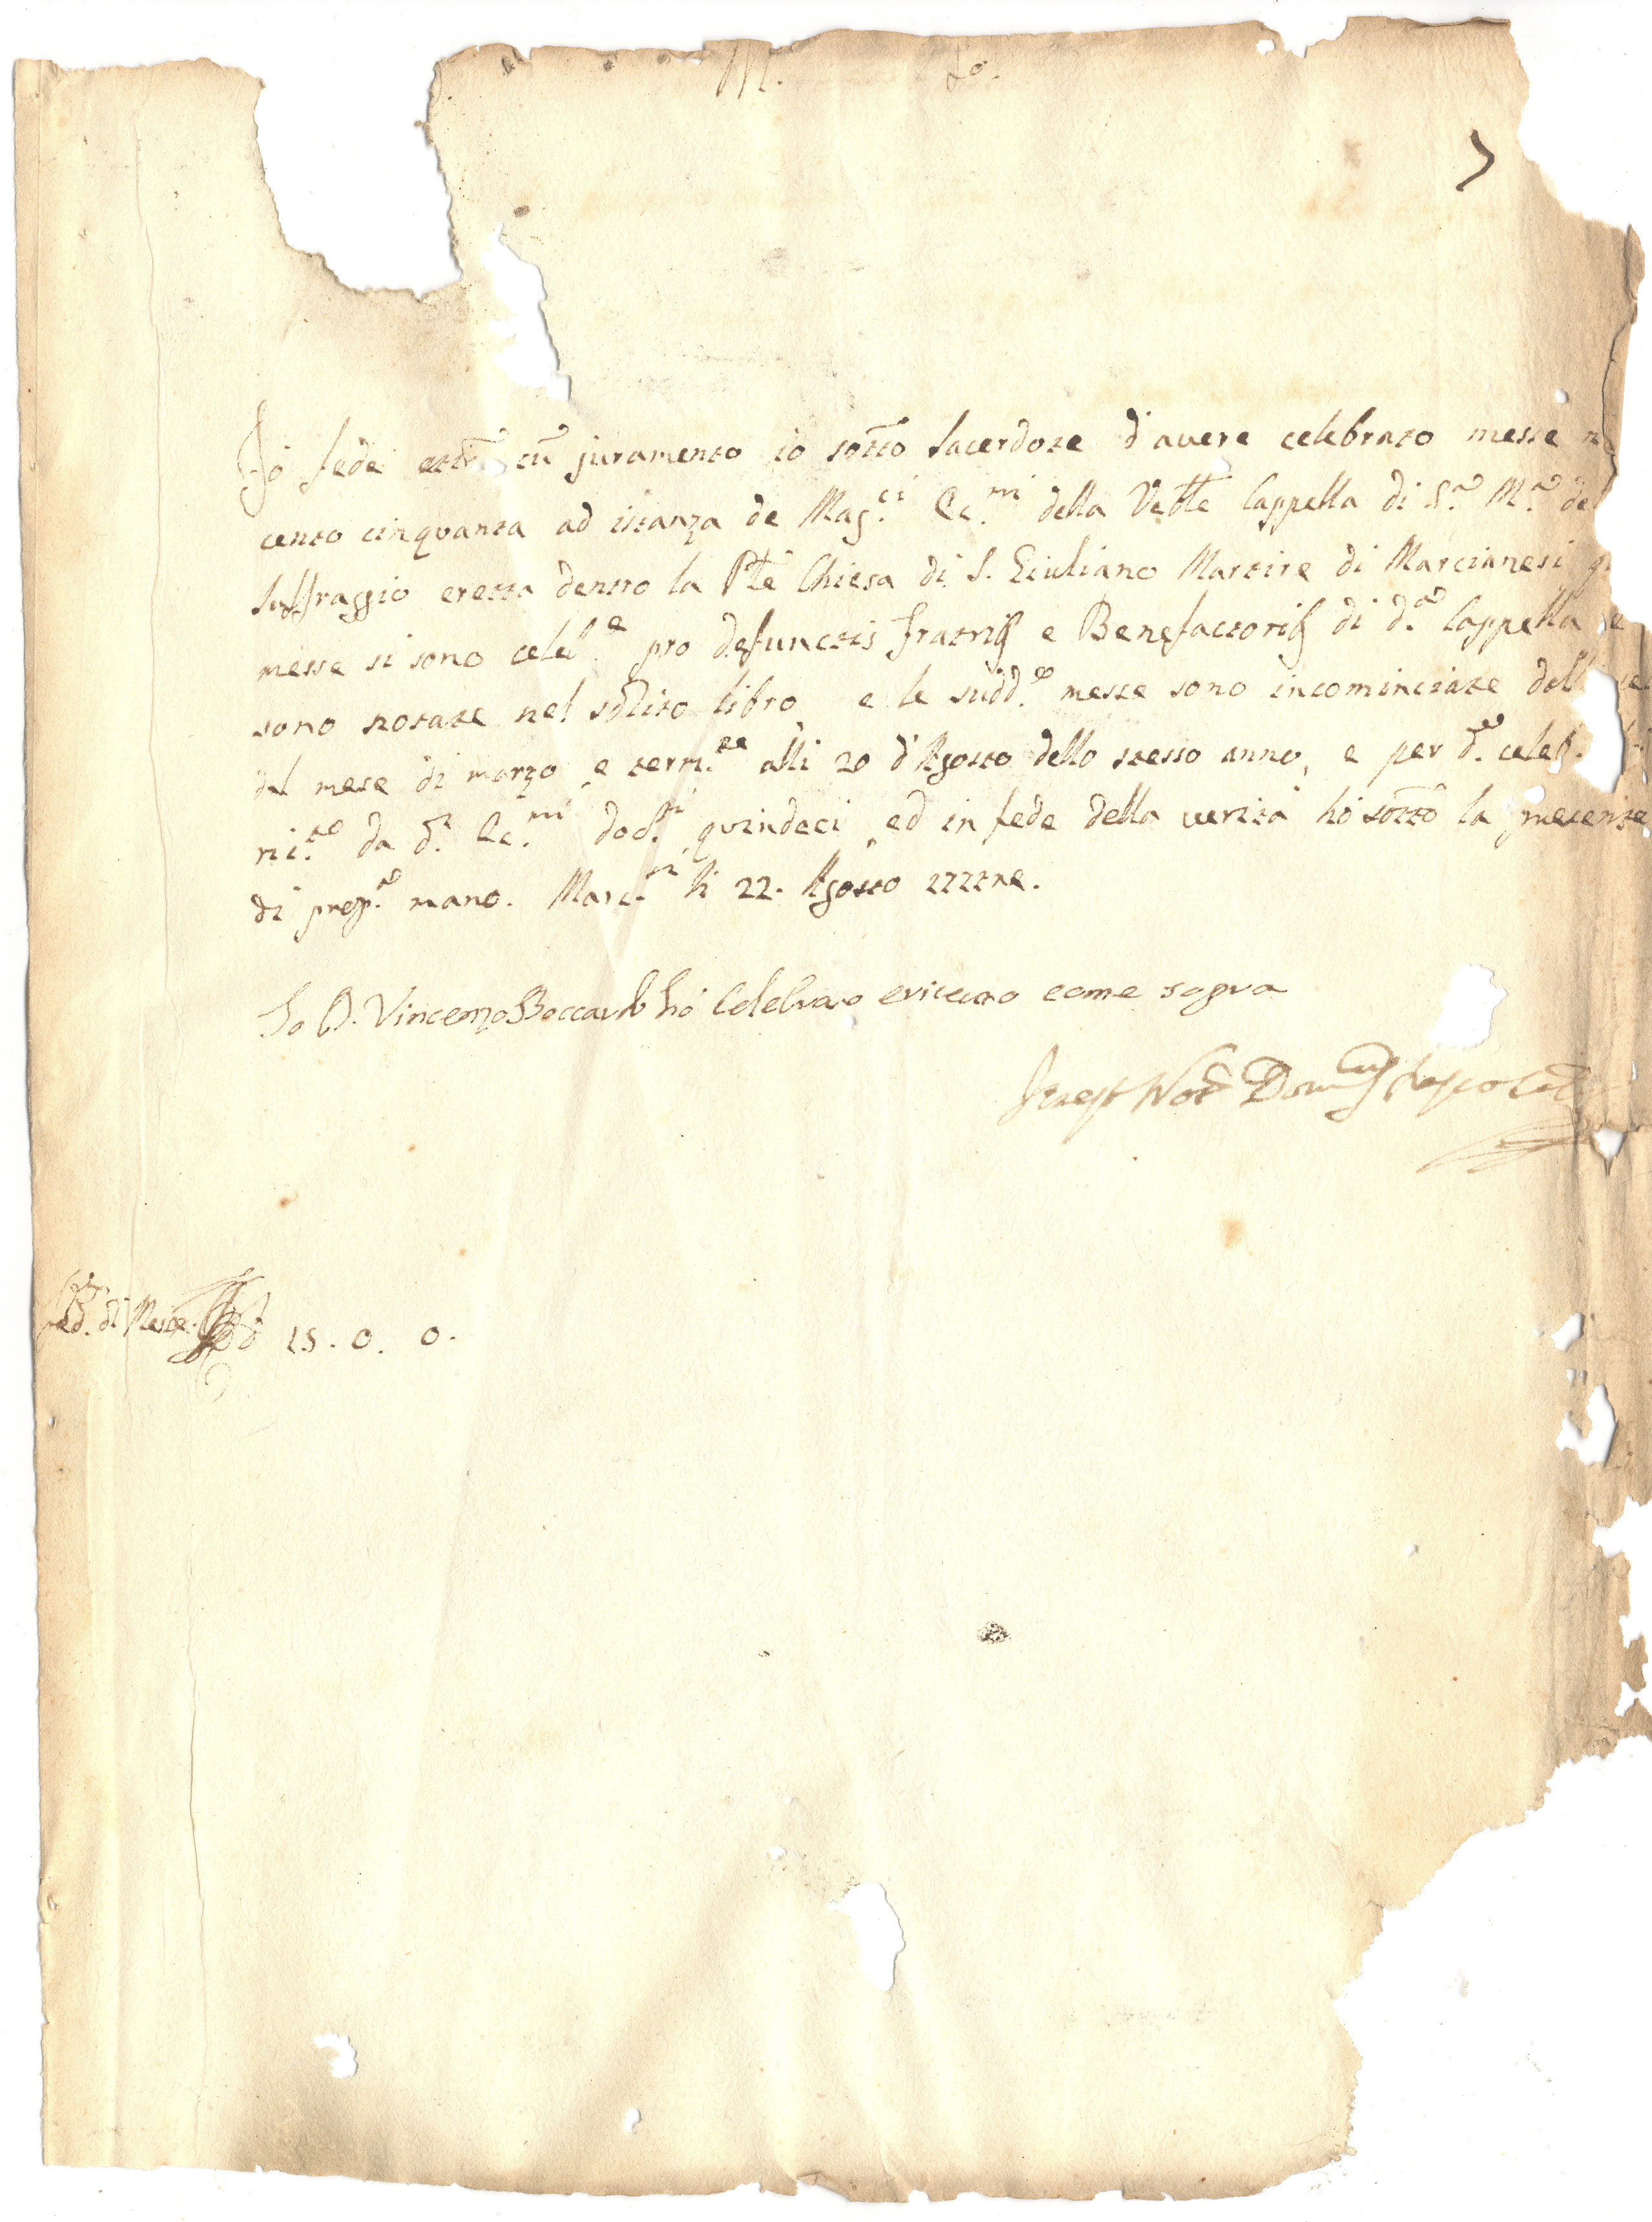 7
Fò fede etiã cũ juramento io sotto Sacerdote d'avere celebrato messe n
cento cinquanta ad istanza de Mag.ci Ec.mi della Vente Cappella di S.a M.a del
Suffraggio eretta dentro la Płe Chiesa di S. Giuliano Martire di Marcianesi q
messe si sono celeb.e pro defunctis fratrib e Benefactorib di d.a Cappella e
sono notate nel solito libro, e le sudd.e messe sono incominciate dall
dal mese di marzo, e term.te alli 20 d'Agosto dello stesso anno, e per d.e celeb.
ri.to da d.i Ec.mi doc.ti quindeci, ed in fede della verità hò sotto la presente
di prop.a mano. Marc.si li 22. Agosto
Io D. Vincenzo Boccardo hò Celebrato e riceuto come sopra
Not Dom
Fed. di Messe
15. 0. 0.